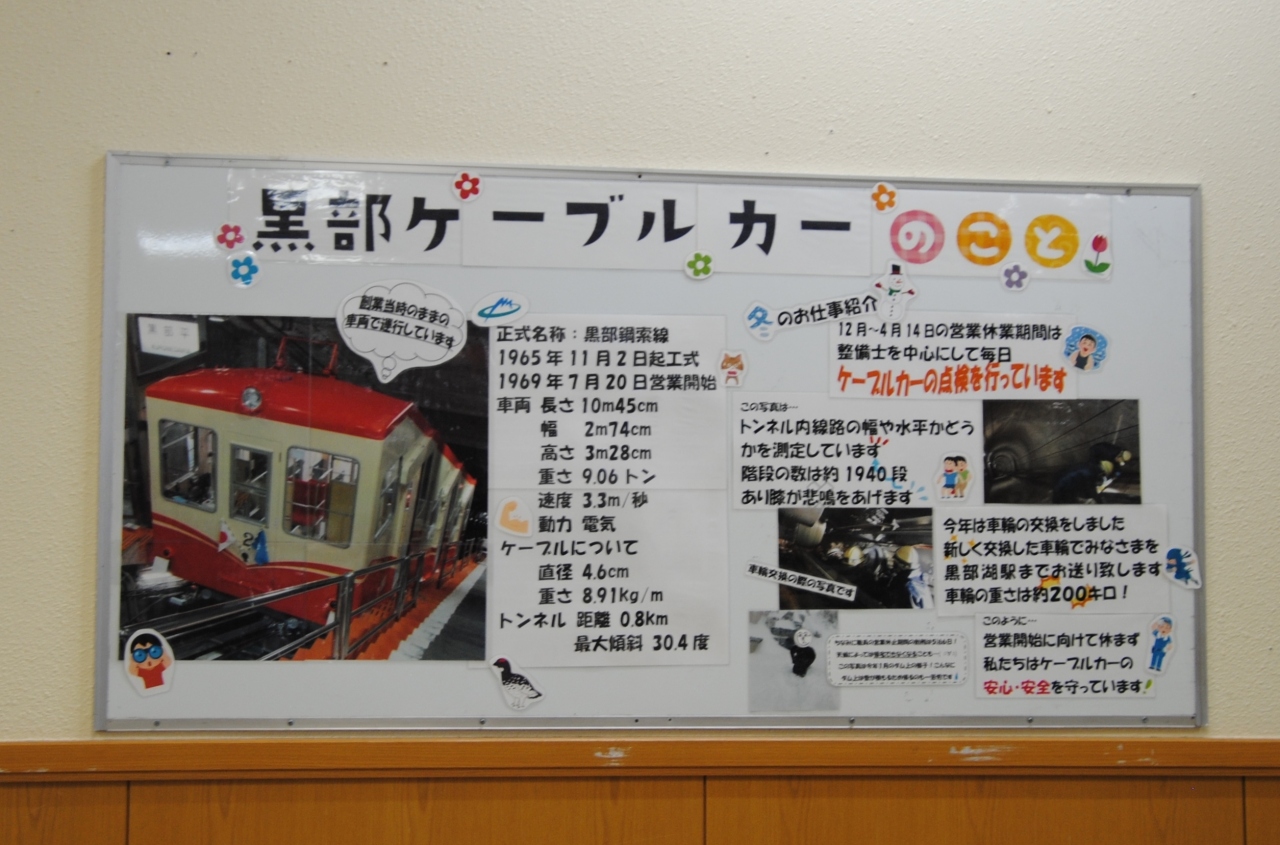 黒部ケーブルカーのこと
創業当時のままの
車両で運行しています
黒部平
正式名称：黒部鋼索線
1965年11月2日起工式
1969年7月20日営業開始
車両 長さ 10m45cm
幅 2m74cm
高さ 3m28cm
重さ 9.06トン
速度 3.3m/秒
動力 電気
ケーブルについて
直径 4.6cm
重さ 8.91kg/m
トンネル 距離 0.8km
最大傾斜 30.4度
冬のお仕事紹介
12月～4月14日の営業休業期間は
整備士を中心にして毎日
ケーブルカーの点検を行っています
この写真は…
トンネル内線路の幅や水平かどう
かを測定しています
階段の数は約1940段
あり膝が悲鳴をあげます
車輪交換の際の写真です
今年は車輪の交換をしました
新しく交換した車輪でみなさまを
黒部湖駅までお送り致します
車輪の重さは約200キロ！
このように…
営業開始に向けて休まず
私たちはケーブルカーの
安心・安全を守っています！